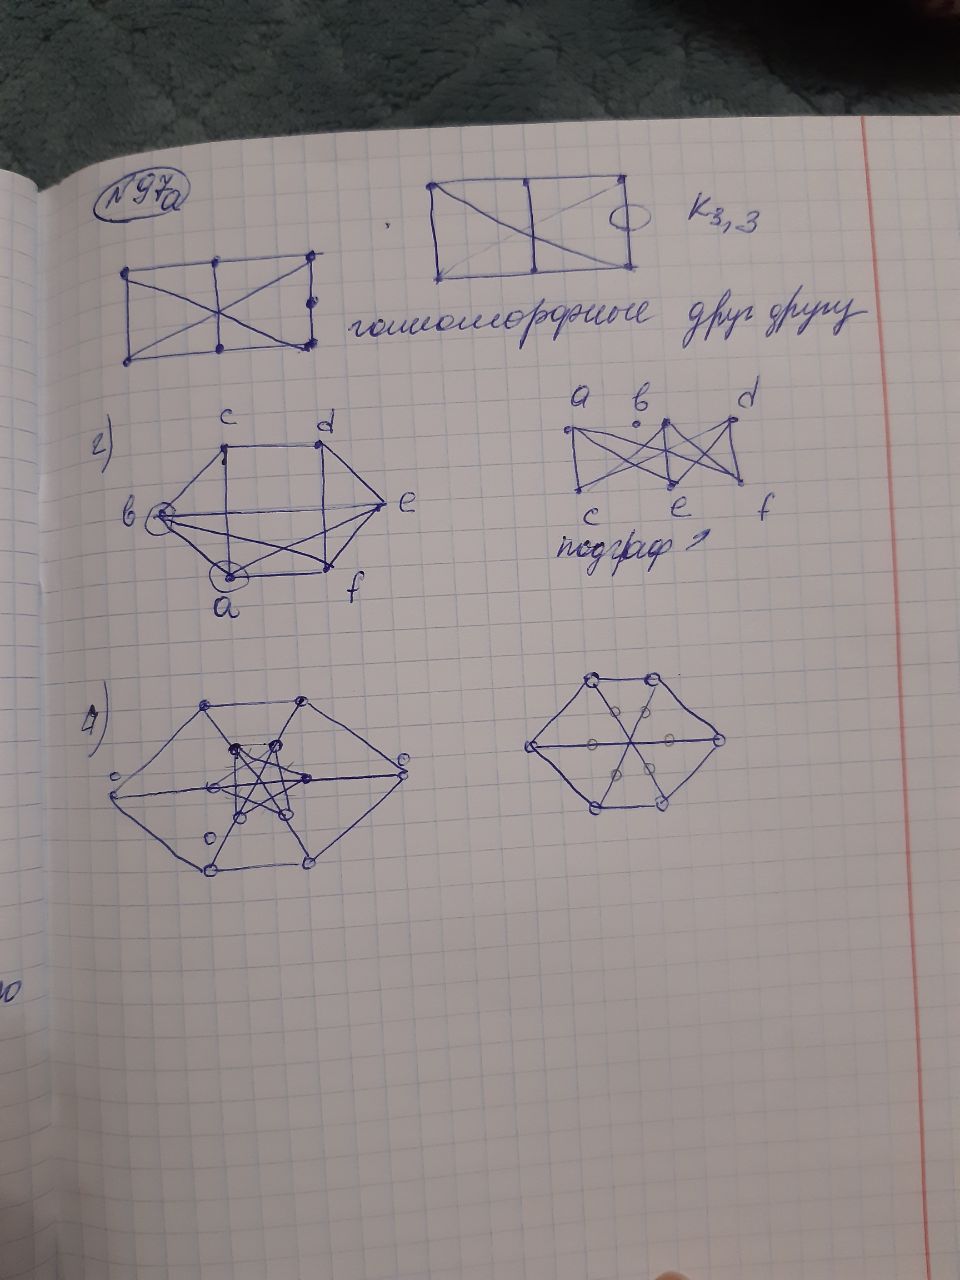 N 97a
K3,3
гомеоморфные друг другу
2)
c d
b e
a f
a b d
c e f
подграф
4)
ю